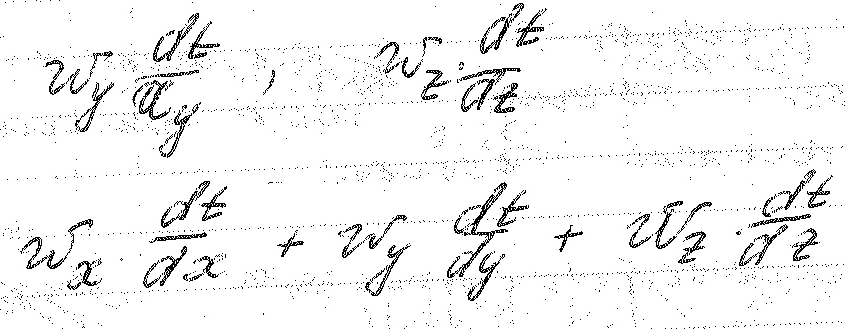 w_y dt/dy , w_z · dt/dz
w_x · dt/dx + w_y dt/dy + w_z · dt/dz